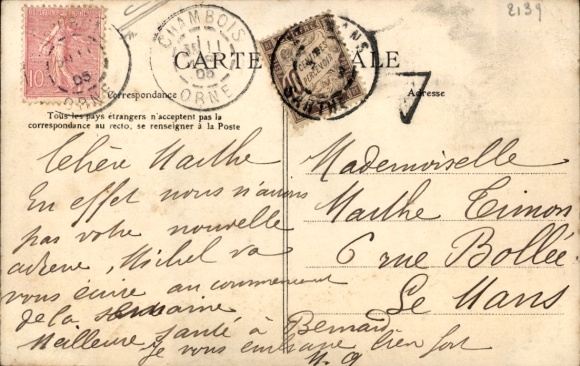 2139
RÉPUBLIQUE FRANÇAISE
10
CHAMBOIS
11
05
ORNE
CHIFFRE TAXE
10
CENTIMES
À PERCEVOIR
MANS
SARTHE
CARTE POSTALE
Correspondance
Adresse
Tous les pays étrangers n'acceptent pas la
correspondance au recto, se renseigner à la Poste
Chère Marthe
En effet nous n'avions
pas votre nouvelle
adresse, Michel va
vous écrire au commencement
de la semaine
Meilleure santé à Bernard
Je vous embrasse bien fort
M. G
Mademoiselle
Marthe Timon
6 rue Bollée
Le Mans